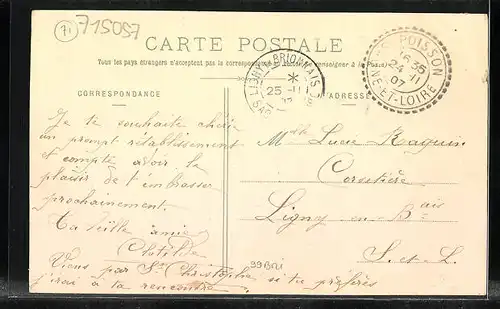 71
715057
CARTE POSTALE
Tous les pays étrangers n'acceptent pas la correspondance
renseigner à la Poste
CORRESPONDANCE
ADRESSE
LIGNY-BRIONNAIS
*
25 -11
POISSON
6 35
24 -11
07
SAÔNE-ET-LOIRE
Je te souhaite chérie
un prompt rétablissement
et compte avoir le
plaisir de t'embrasser
prochainement.
Ta vieille amie
Clotilde
Viens par St Christophe si tu préfères
j'irai à ta rencontre
Melle Lucie Raquin
Corsetière
Ligny-en-Bais
S.-et-L.